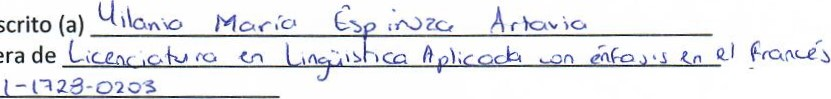 scrito (a) Hilania María Espinoza Artavia
era de Licenciatura en Lingüística Aplicada con énfasis en el francés
1-1728-0203